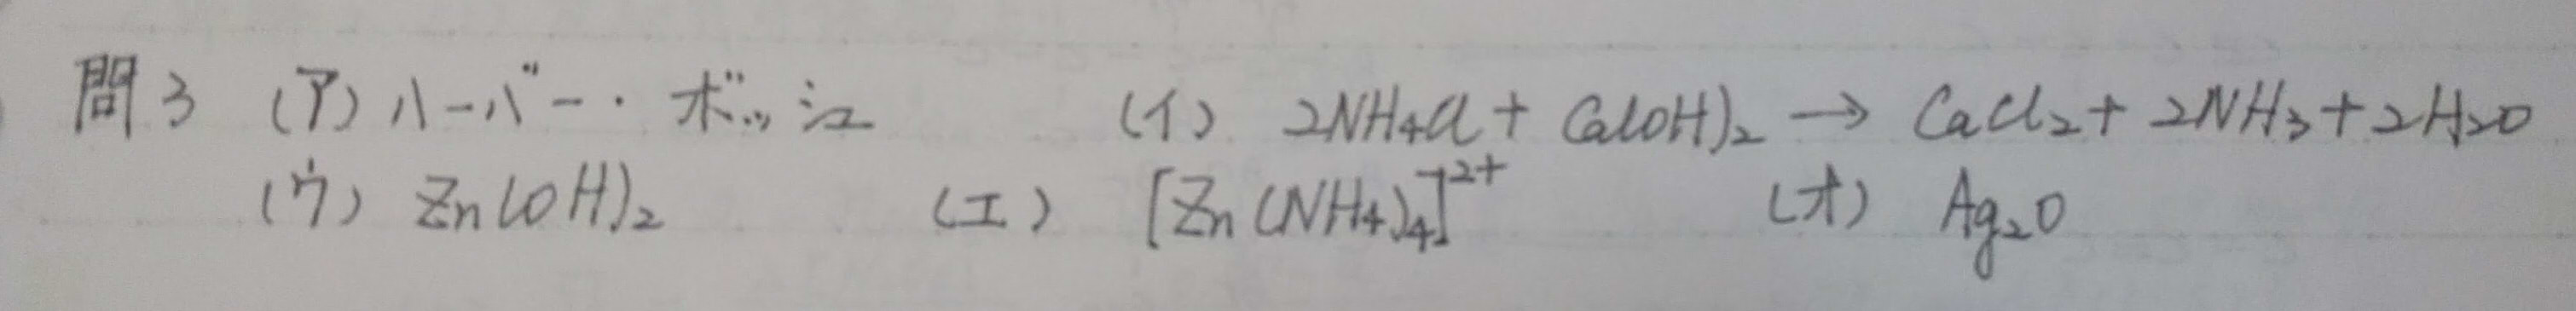 問3 (ア) ハーバー・ボッシュ (イ) 2NH₄Cl + Ca(OH)₂ → CaCl₂ + 2NH₃ + 2H₂O
(ウ) Zn(OH)₂ (エ) [Zn(NH₄)₄]²⁺ (オ) Ag₂O